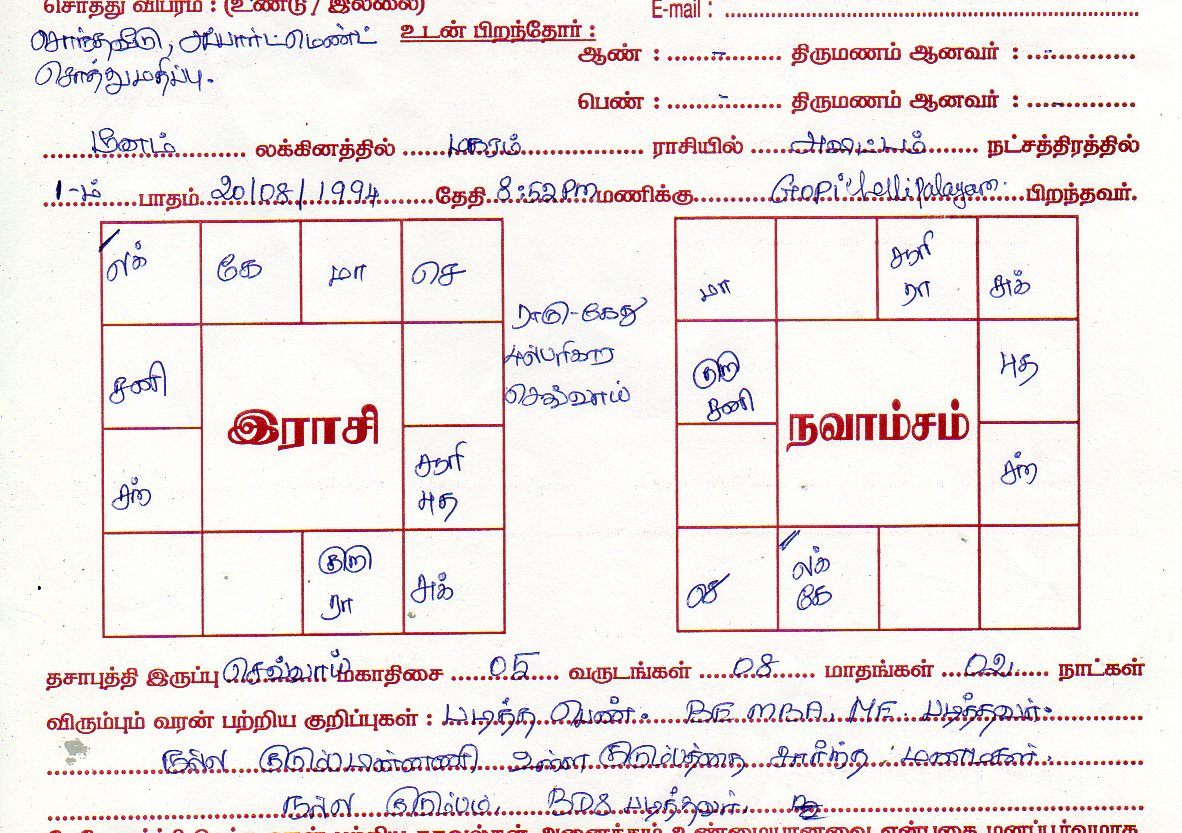 சொத்து விபரம் : (உண்டு / இல்லை)
E-mail : ............
சொந்தவீடு, அபார்ட்மெண்ட்
சொத்துமதிப்பு.
உடன் பிறந்தோர் :
ஆண் : ......-...... திருமணம் ஆனவர் : ...-......
பெண் : ......-...... திருமணம் ஆனவர் : ...-......
மீனம் லக்கினத்தில் மகரம் ராசியில் அவிட்டம் நட்சத்திரத்தில்
1-ம் பாதம் 20/08/1994 தேதி 8:52 Pm மணிக்கு Gopichettipalayam பிறந்தவர்.
லக் கே மா செ
சனி
சந்
சூரி
புத
குரு
ரா
சுக்
இராசி
ராகு-கேது
செவ்வாய்
மா சூரி
ரா
சுக்
குரு
சனி
புத
சந்
செ லக்
கே
நவாம்சம்
தசாபுத்தி இருப்பு செவ்வாய் மகாதிசை 05 வருடங்கள் 08 மாதங்கள் 02 நாட்கள்
விரும்பும் வரன் பற்றிய குறிப்புகள் : படித்த பெண். BE MBA, ME. படித்தவர்.
நல்ல உள்ள குடும்பத்தை சார்ந்த மணமகள்.
நல்ல குடும்பம். BDS படித்தவர்.